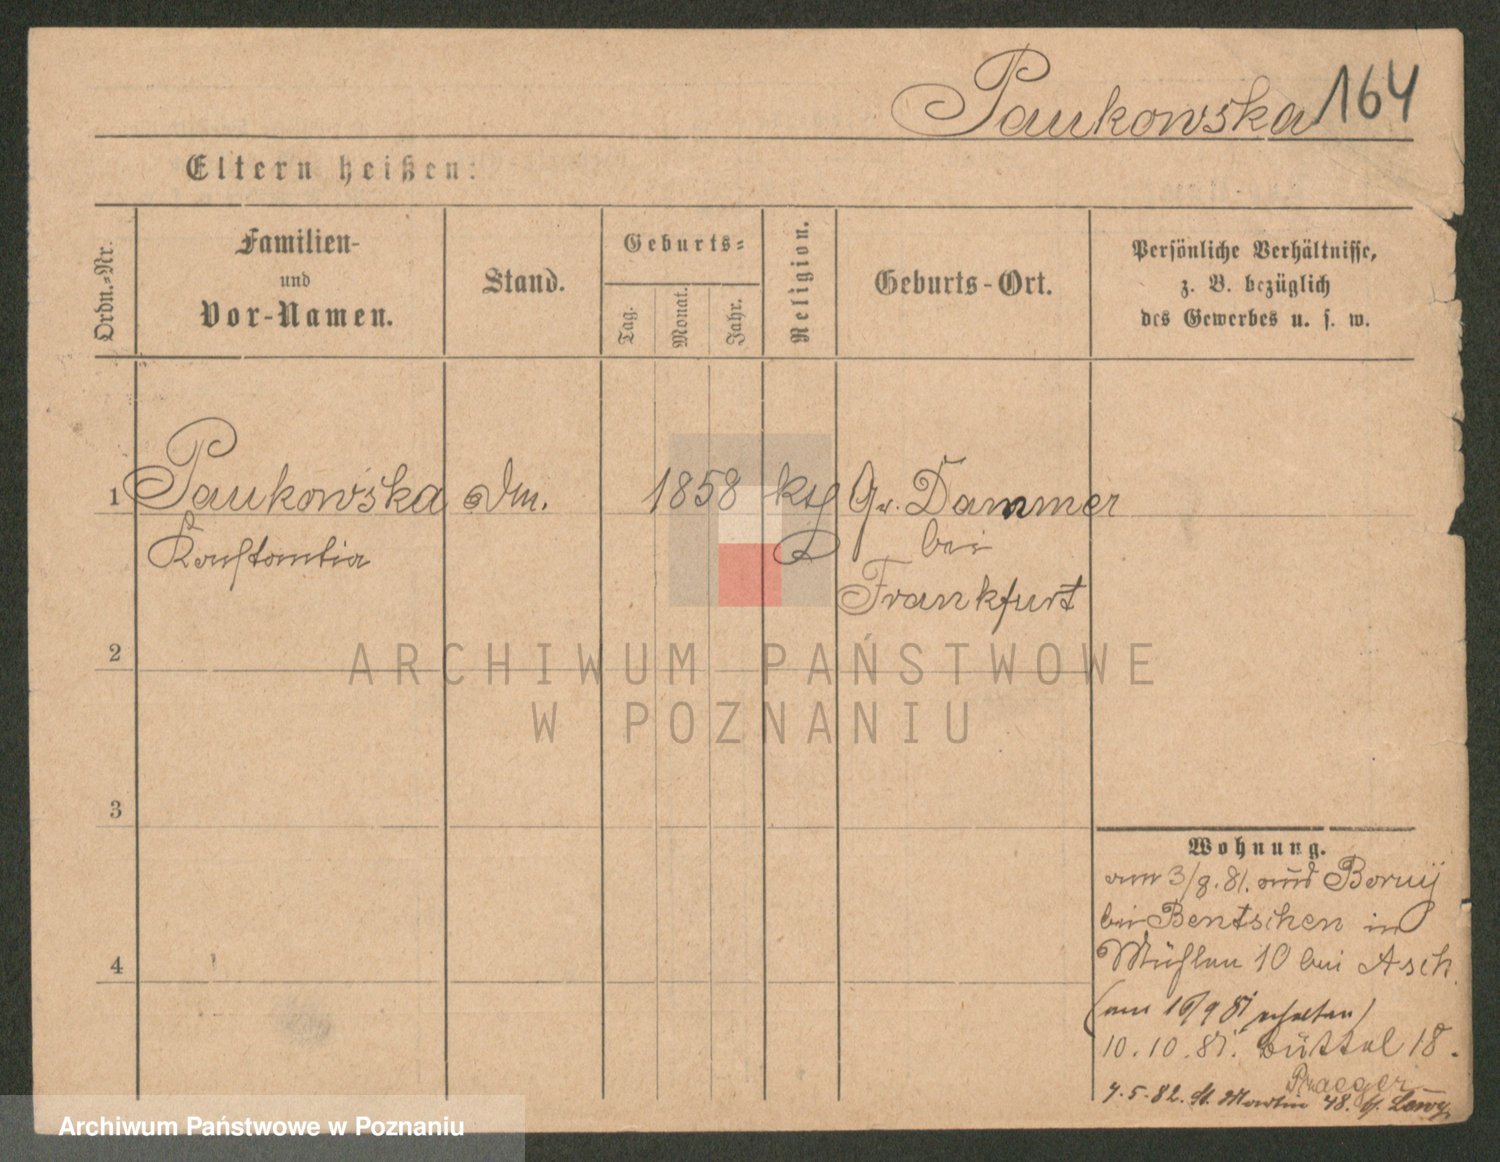 Paukowska 164
Eltern heißen:
Ordn.-Nr.
Familien-
und
Vor-Namen.
Stand.
Geburts-
Tag.
Monat.
Jahr.
Religion.
Geburts-Ort.
Persönliche Verhältnisse,
z. B. bezüglich
des Gewerbes u. s. w.
1 Paukowska 1858 kth Gr. Dammer
Konstantia bei
Frankfurt
2
3
4
ARCHIWUM PAŃSTWOWE
W POZNANIU
Wohnung.
am 3/9.81. aus Boruy
bei Bentschen in
Mühlen 10 bei Asch
(am 16/9 81 erhalten)
10.10.81. Büttel 18.
Praeger
4.5.82. St. Martin 48. b. Lewy
Archiwum Państwowe w Poznaniu